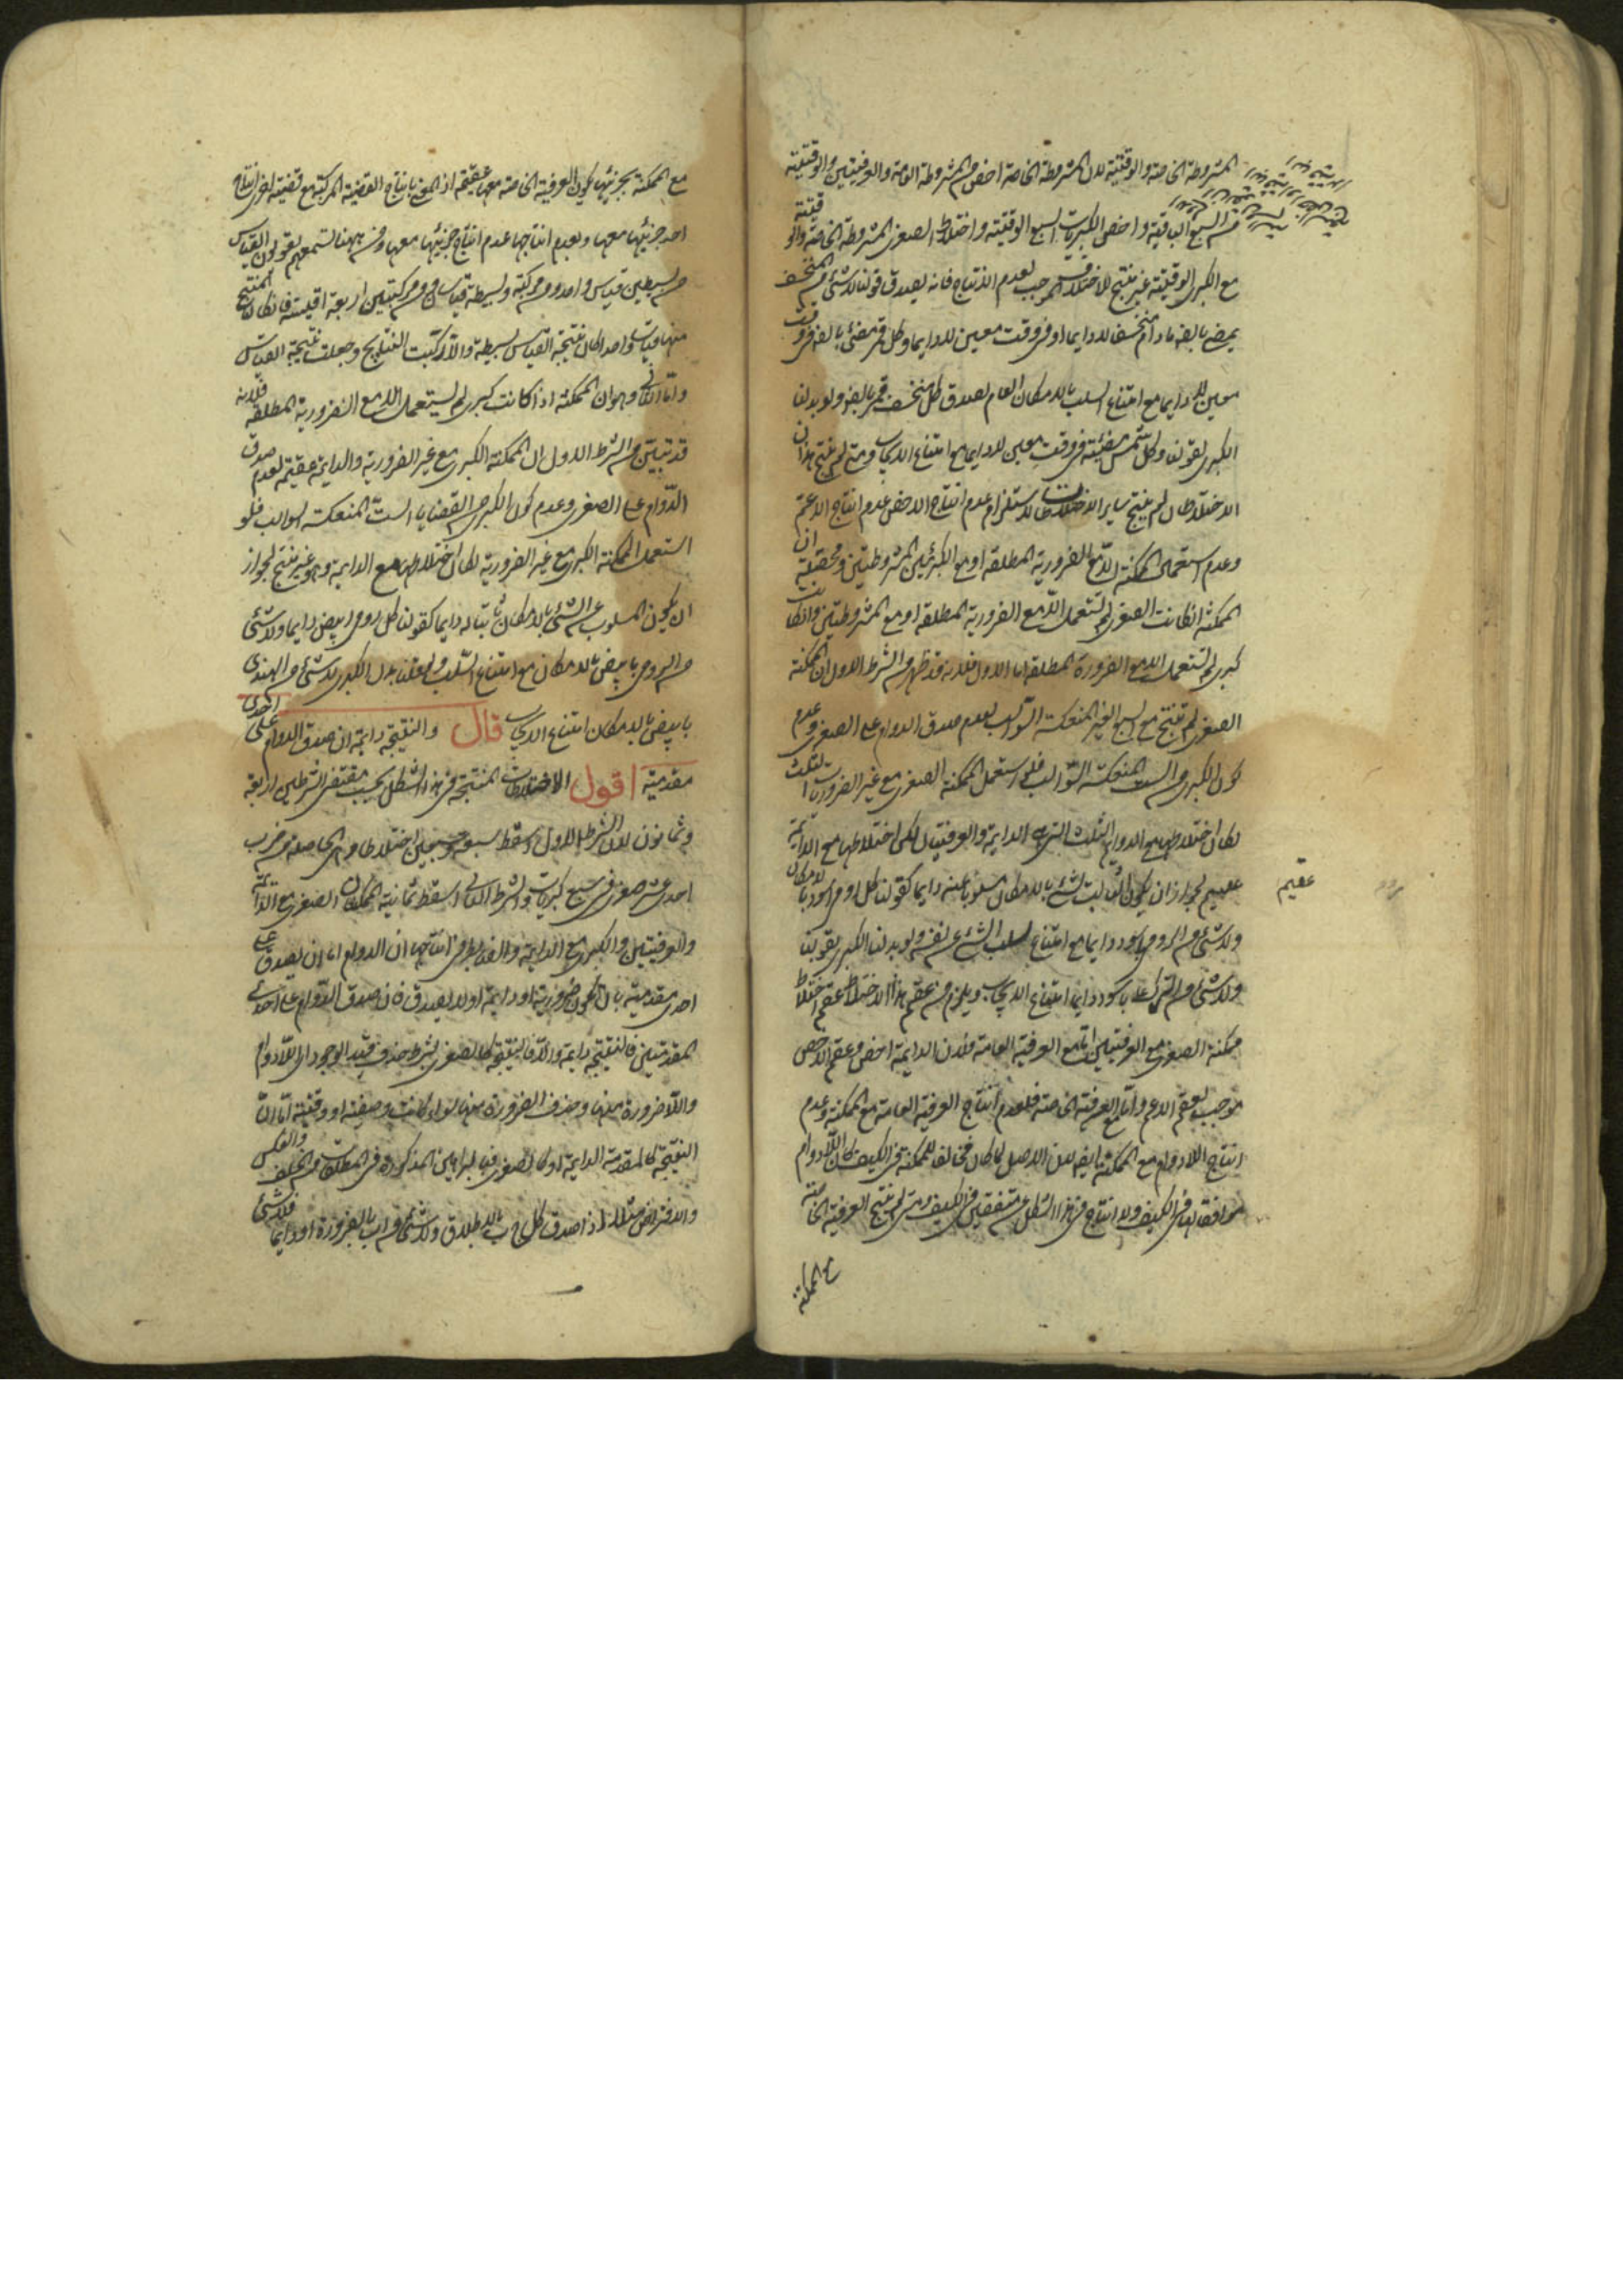 المشروطة الخاصة والوقتية لان المشروطة الخاصة اخص من المشروطة العامة والعرفيتين والوقتية
من السبع الباقية واخص الكبريات السبع الوقتية واختلاط الصغرى المشروطة الخاصة والوقتية
مع الكبرى الوقتية غير منتج للاختلاف الموجب لعدم الانتاج فانه يصدق قولنا لا شئ من المنخسف
بمضئ بالضرورة مادام منخسفا لا دايما او فى وقت معين لا دايما وكل قمر مضئ بالضرورة فى وقت
معين لا دايما مع امتناع السلب بالامكان العام لصدق كل منخسف قمر بالضرورة ولو بدلنا
الكبرى بقولنا وكل شمس مضيئة فى وقت معين لا دايما مع امتناع الايجاب ومتى لم ينتج هذان
الاختلاطان لم ينتج ساير الاختلاطات لاستلزام عدم انتاج الاخص عدم انتاج الاعم
وعدم استعمال الممكنة الا مع الضرورية المطلقة او مع الكبريين المشروطتين ومحصله ان
الممكنة ان كانت الصغرى لم تستعمل الا مع الضرورية المطلقة او مع المشروطتين وان كانت
كبرى لم تستعمل الا مع الضرورة المطلقة اما الاول فلانه قد ظهر من الشرط الاول ان الممكنة
الصغرى لم تنتج مع السبع الغير المنعكسة السوالب لعدم صدق الدوام على الصغرى وعدم
كون الكبرى من الست المنعكسة السوالب فلو استعمل الممكنة الصغرى مع غير الضروريات الثلث
لكان اختلاطها مع الدوايم الثلث التى هى الدايمة والعرفيتان لكن اختلاطها مع الدايمة
عقيم لجواز ان يكون الثابت لشئ بالامكان مسلوبا عنه دايما كقولنا كل رومى اسود بالامكان
ولا شئ من الرومى باسود دايما مع امتناع سلب الشئ عن نفسه ولو بدلنا الكبرى بقولنا
ولا شئ من التركى باسود دايما امتنع الايجاب ويلزم من عقم هذا الاختلاط عقم اختلاط
ممكنة الصغرى مع العرفيتين اما مع العرفية العامة فلان الدايمة اخص وعقم الاخص
موجب لعقم الاعم واما مع العرفية الخاصة فلعدم انتاج العرفية العامة مع الممكنة وعدم
انتاج اللادوام مع الممكنة ايضا لان الاصل لما كان مخالفا للممكنة فى الكيف كان اللادوام
موافقا لها فى الكيف ولا انتاج فى هذا الشكل عن متفقين فى الكيف ومتى لم ينتج العرفية الخاصة
مع الممكنة
عقيم
مع الممكنة بجزئيها يكون العرفية الخاصة معها عقيمة اذ المعنى بانتاج القضية المركبة مع قضية اخرى انتاج
احد جزئيها معها وبعدم انتاجها عدم انتاج جزئيها معها ومن ههنا تسمعهم يقولون القياس
من بسيطين قياس واحد ومن مركبة وبسيطة قياسان ومن مركبتين اربعة اقيسة فان كان المنتج
منها قياسا واحدا كان نتيجة القياس بسيطة والا ركبت النتايج وجعلت نتيجة القياس
واما الثانى وهو ان الممكنة اذا كانت كبرى لم يستعمل الا مع الضرورية المطلقة فلانه
قد تبين من الشرط الاول ان الممكنة الكبرى مع غير الضرورية والدايمة عقيمة لعدم صدق
الدوام على الصغرى وعدم كون الكبرى من القضايا الست المنعكسة السوالب فلو
استعمل الممكنة الكبرى مع غير الضرورية لكان اختلاطها مع الدايمة وهو غير منتج لجواز
ان يكون المسلوب عن الشئ بالامكان ثابتا له دايما كقولنا كل رومى ابيض دايما ولا شئ
من الرومى بابيض بالامكان مع امتناع السلب ولو قلنا بدل الكبرى لا شئ من الهندى
بابيض بالامكان امتنع الايجاب قال والنتيجة دايمة ان صدق الدوام على احدى
مقدمتيه اقول الاختلاطات المنتجة فى هذا الشكل بحسب مقتضى الشرطين اربعة
وثمانون لان الشرط الاول اسقط سبعة وسبعين اختلاطا وهى الحاصلة من ضرب
احدى عشر صغرى فى سبع كبريات والشرط الثانى اسقط ثمانية الممكنتان الصغرى مع الدايمة
والعرفيتين والكبرى مع الدايمة والضابط فى انتاجها ان الدوام اما ان يصدق على
احدى مقدمتيه بان تكون ضرورية او دايمة او لا يصدق فان صدق الدوام على احدى
المقدمتين فالنتيجة دايمة والا فالنتيجة كالصغرى بشرط حذف قيد الوجود اى اللادوام
واللاضرورة منها وحذف الضرورة منها سواء كانت وصفية او وقتية اما ان
النتيجة كالمقدمة الدايمة او كالصغرى فبالبراهين المذكورة فى المطلقات من الخلف والعكس
والافتراض مثلا اذا صدق كل ج ب بالاطلاق ولا شئ من ا ب بالضرورة او دايما فلا شئ